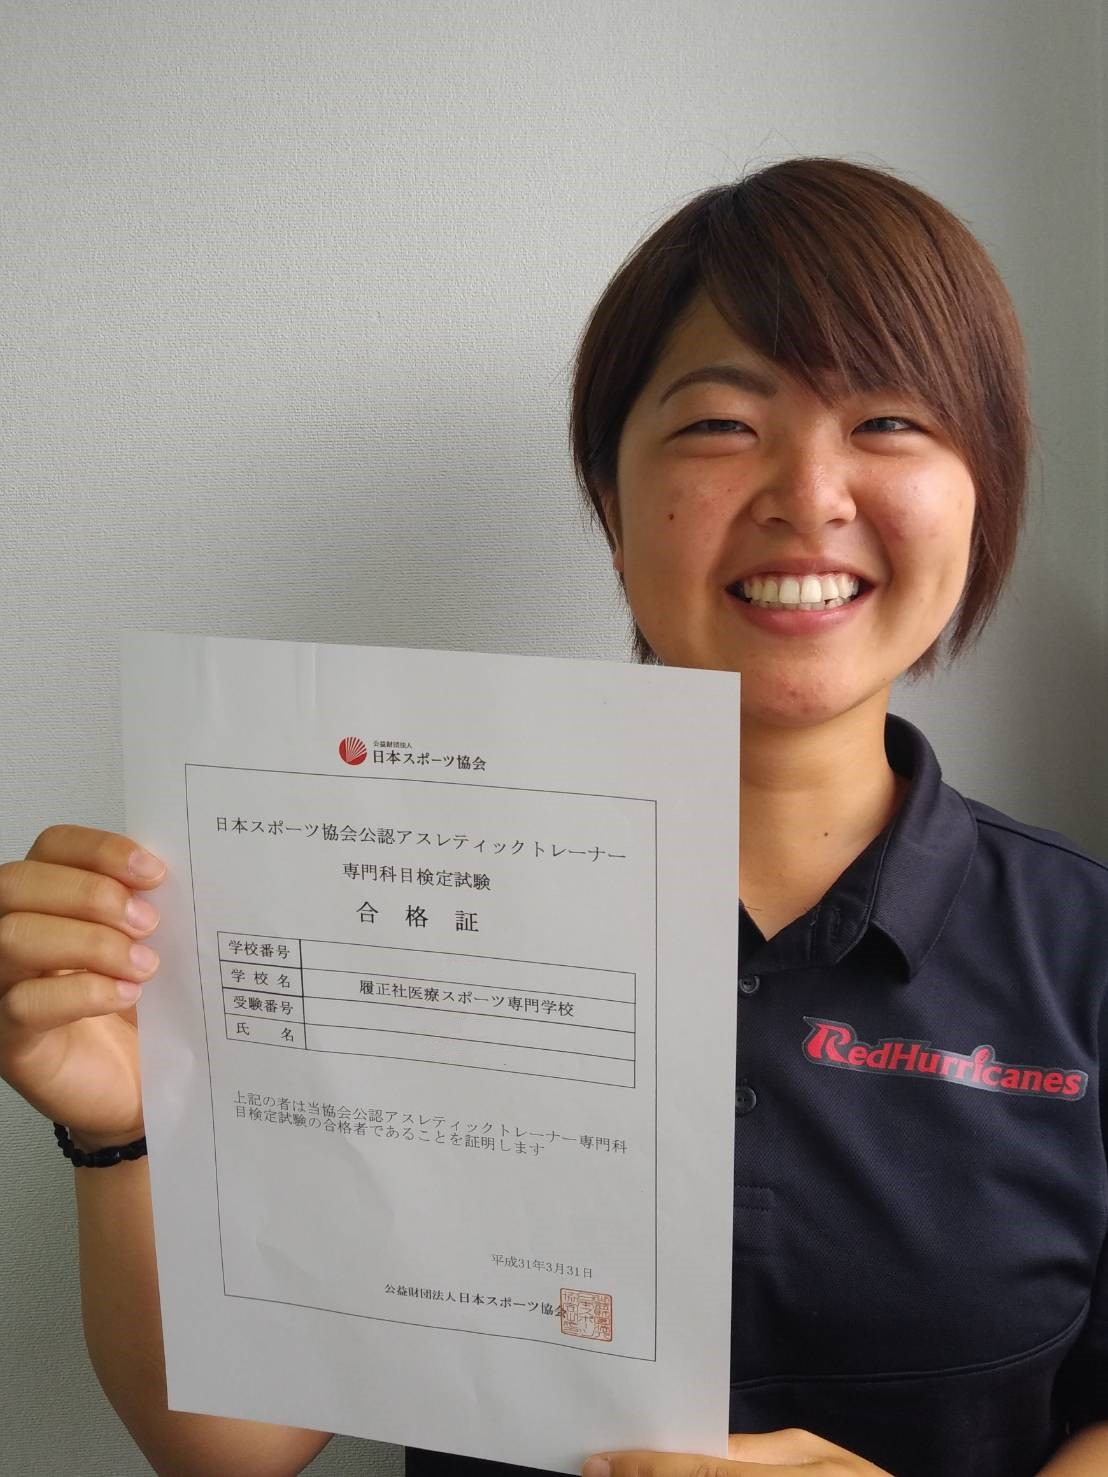 公益財団法人
日本スポーツ協会
日本スポーツ協会公認アスレティックトレーナー
専門科目検定試験
合格証
学校番号
学校名 履正社医療スポーツ専門学校
受験番号
氏名
上記の者は当協会公認アスレティックトレーナー専門科
目検定試験の合格者であることを証明します
平成31年3月31日
公益財団法人日本スポーツ協会
RedHurricanes